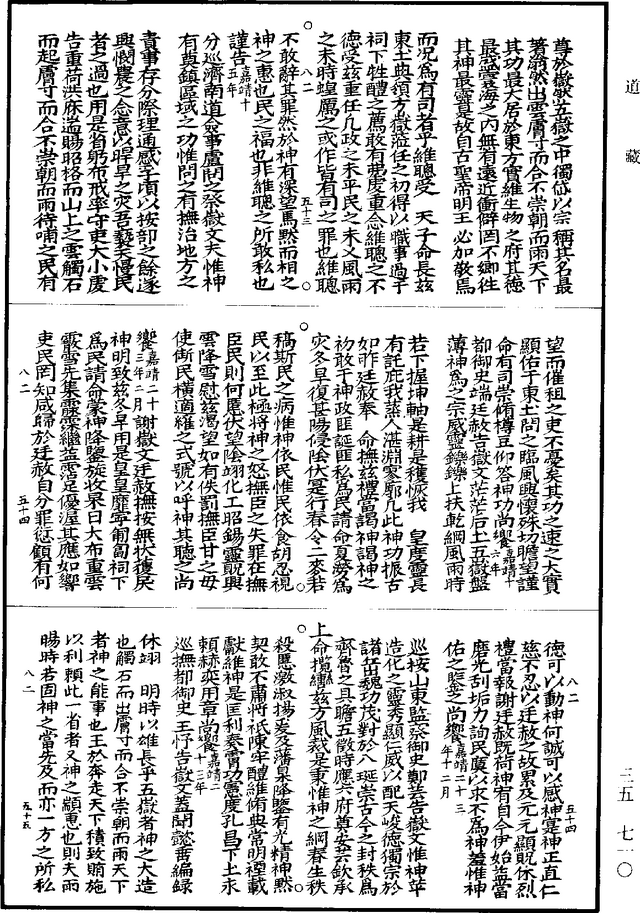 道藏
尊於嶽然五嶽之中獨岱以宗稱其名最
著翁然出雲膚寸而合不崇朝而雨天下
其功最大居於東方實維生物之府其德
最盛寰海之內無有遠近衝僻罔不鄉往
其神最靈是故自古聖帝明王必加敬焉
而況爲有司者乎維聰受　天子命長茲
東土與領方嶽蒞任之初得以職事過于
祠下牲醴之薦敢有弗虔重念維聰之不
德受茲重任凡政之未平民之未乂風雨
之未時蝗厲之或作皆有司之罪也維聰
八二　五十三
不敢辭其罪然於神有深望焉默而相之
神之惠也民之福也非維聰之所敢私也
謹告嘉靖十五年
分巡濟南道僉事盧問之祭嶽文天惟神
有奠鎮區域之功惟問之有撫治地方之
責事存分際理通感孚頃以按部之餘遂
興憫農之念意以暵旱之災吾藝芺慢民
者之過也用是省躬布戒率守吏大小虔
告重荷洪庥遄賜昭格而山上之雲觸石
而起膚寸而合不崇朝而雨待哺之民有
望而催租之吏不憂矣其功之速之大實
顯佑于東土問之臨風興懷殊切瞻望謹
命有司崇脩樽豆仰答神功尚饗嘉靖十六年
都御史端廷赦告嶽文茫茫后土五嶽盤
薄神爲之宗威靈鑠鑠上扶乾綱風雨時
若下握坤軸是耕是穫恢我　皇度靈長
有託庇我蒸人湛淵寥廓凡此神功振古
如昨廷赦奉　命撫茲禮當謁神謁神之
初敢干神政匪誕匪私爲民請命夏澇爲
災冬旱復甚陽侵陰伏寔行春令二麥若
稿斯民之病惟神依民惟民依食胡忍視
民以至此極將神之怒撫臣之失罪在撫
臣民則何慝伏望陰翊化工昭錫靈貺興
雲降雪慰茲渴望如有佚罰撫臣甘之毋
使衡民橫適羅之式號以呼神其聽之尚
饗嘉靖二十三年二月謝嶽文廷赦撫按無狀獲戾
神明致茲冬旱用是皇皇靡寧匍匐祠下
爲民請命蒙神降鑒旋收杲日大布重雲
霰雪先集霡霂繼益霑足優渥其應如響
吏民罔知咸歸於廷赦自分罪愆顧有何
八二　五十四
德可以動神何誠可以感神寔神正直仁
慈不忍以廷赦之故累及元元顯貺休烈
禮當報謝廷赦旣荷神宥自今伊始益當
磨光刮垢力詢民瘼以求不爲神羞惟神
佑之鑒之尚饗嘉靖二十三年十二月
巡按山東監察御史鄭芸告嶽文惟神萃
造化之靈秀顯仁威以配天峻德獨宗於
諸岳魏功茂對於八埏崇古今之封秩爲
齊魯之具瞻五徵時應六府尊安芸欽承
上命攬轡茲方風裁是秉惟神之綱春生秩
殺慝激淑揚爰及藩臬降鑒有光精神默
契敢不肅將祇陳牢醴維脩典常明禋載
獻維神是匡利奏膚功憲度孔昌下土永
賴赫奕用章尚饗嘉靖二十三年
巡撫都御史王忬告嶽文蓋聞懿蕃編録
休翊　明時以雄長乎五嶽者神之大造
也觸石而出膚寸而合不崇朝而雨天下
者神之能事也王於奔走天下積致賄施
以利賴此一省者又神之顯惠也則夫雨
暘時若固神之當先及而亦一方之所私
八二　五十五
三五　七一〇